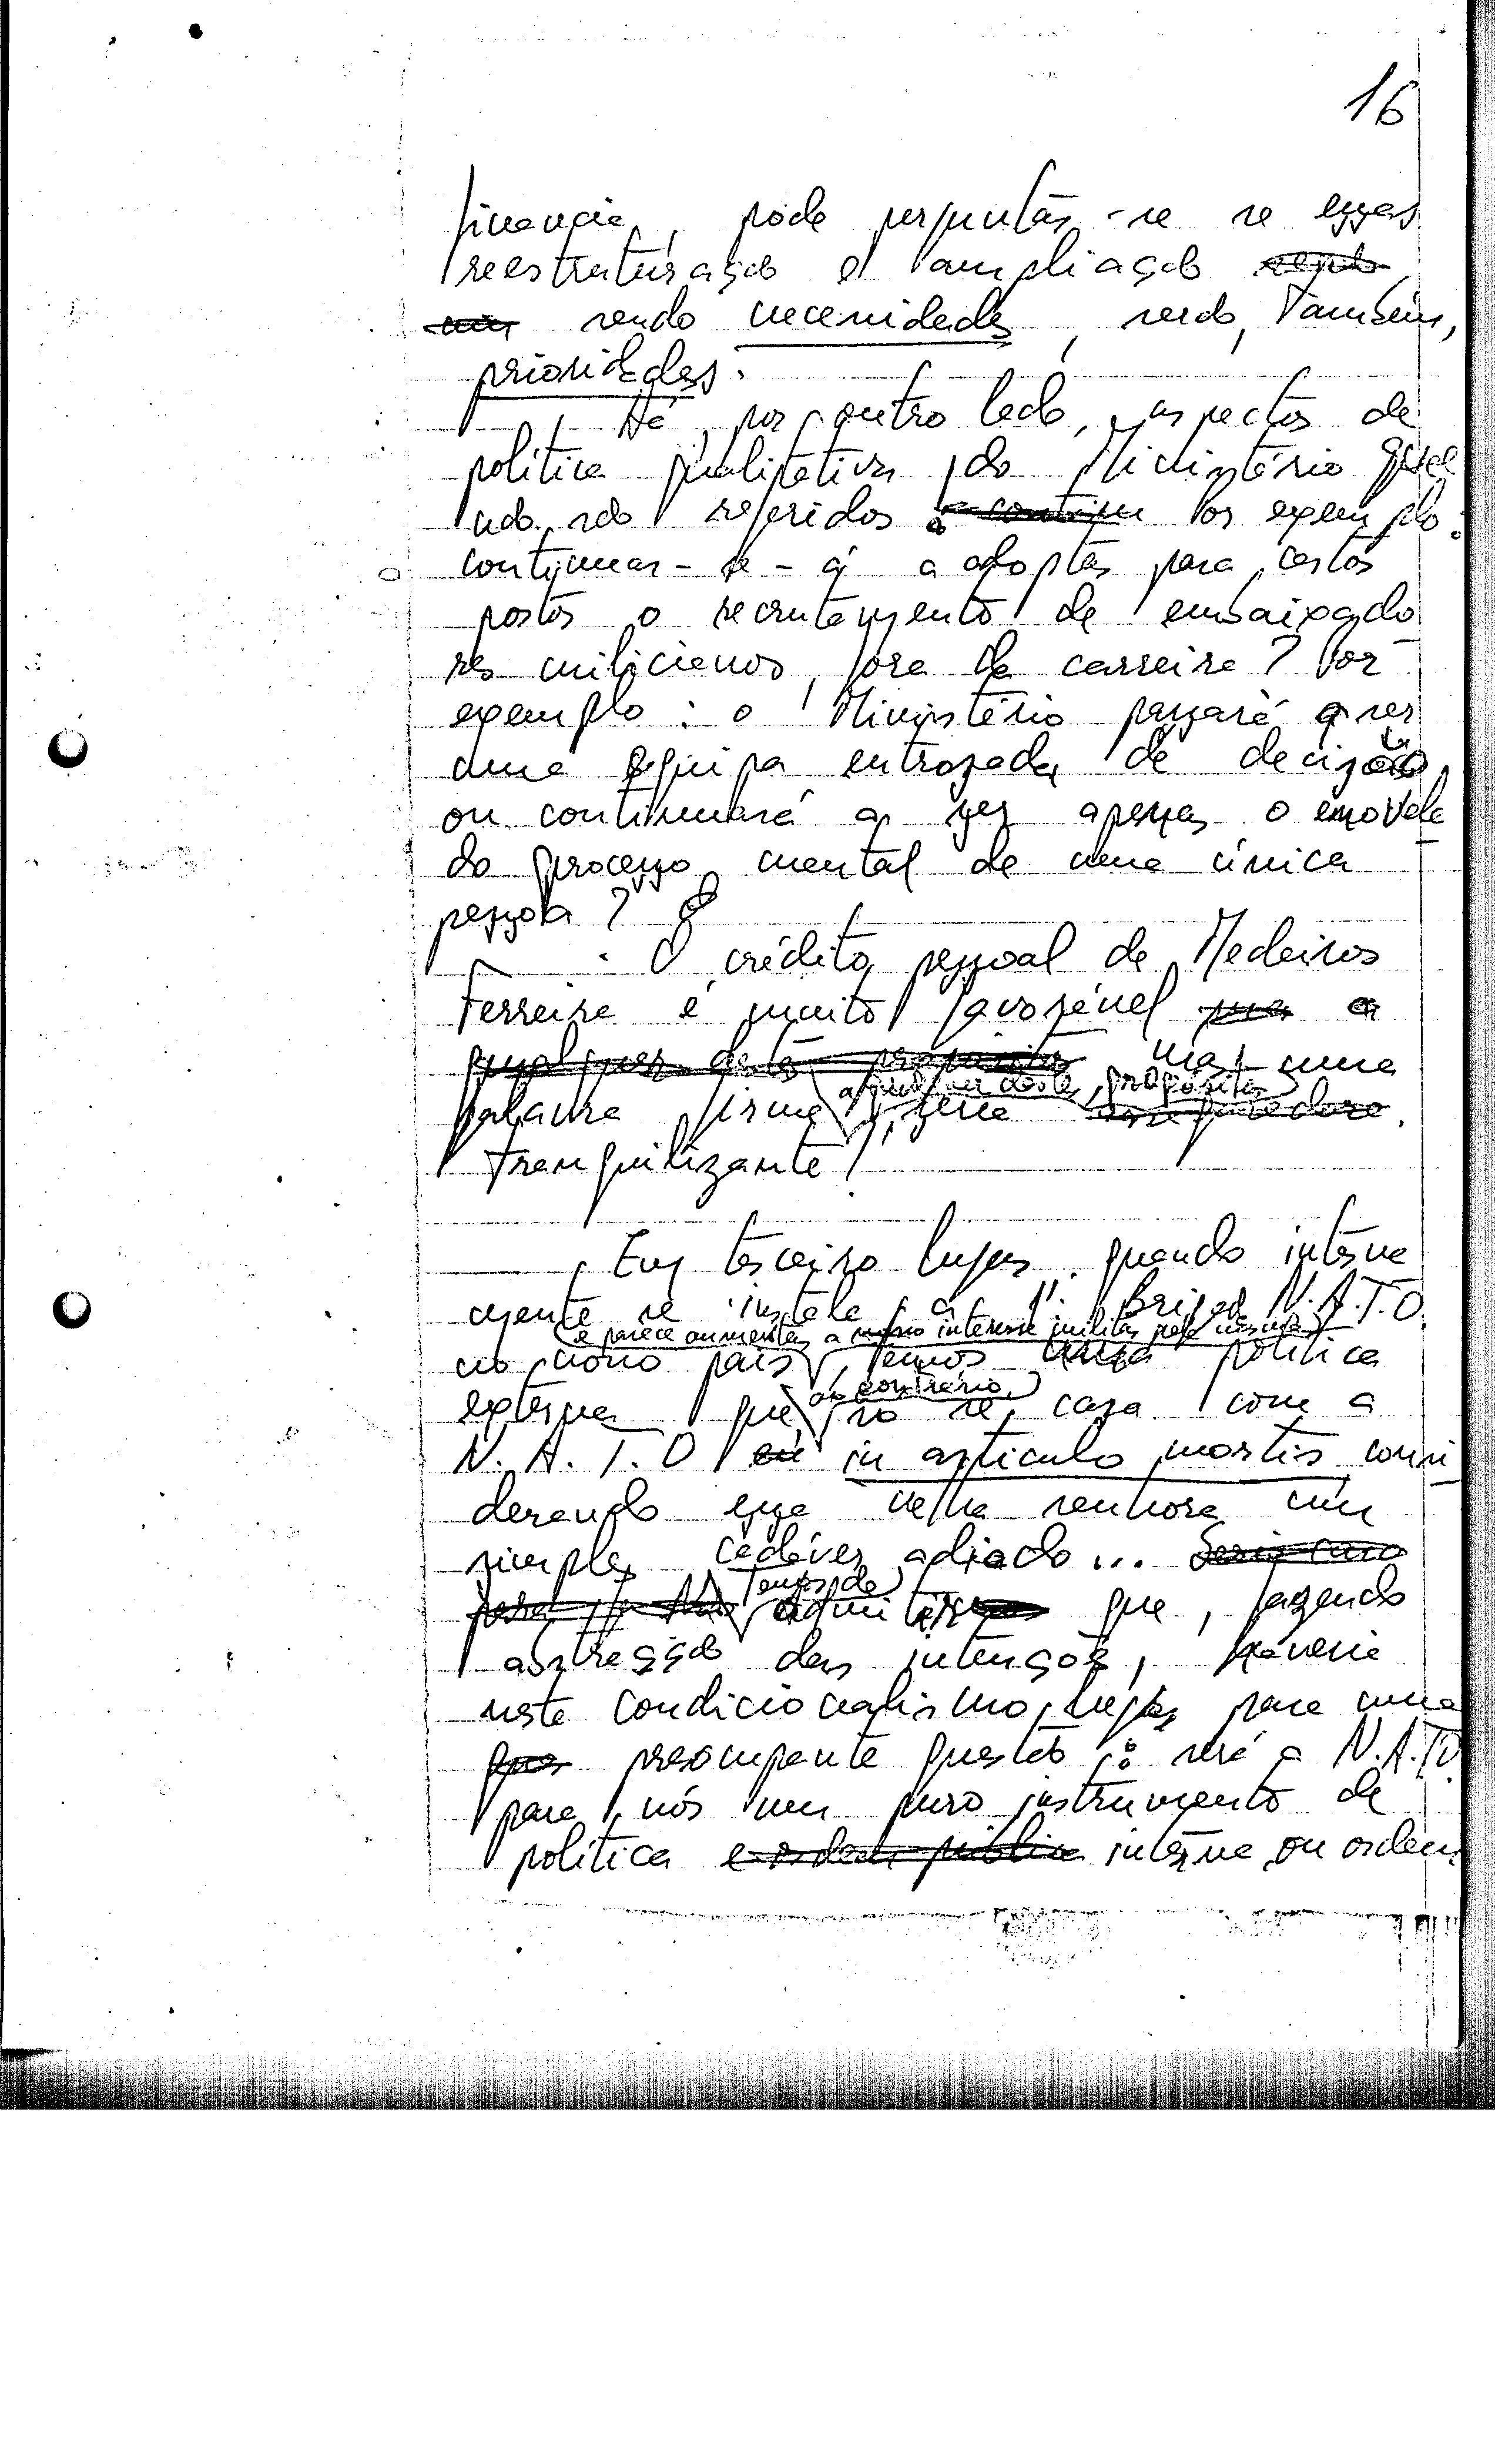 16
financia, pode perguntar-se se essas
reestruturação e ampliação
sendo necessidades, serão, também,
prioridades.
Há, por outro lado, aspectos de
política qualitativa do Ministério que
não são referidos os exemplo:
continuar-se-á a adoptar para certos
postos o recrutamento de embaixado
res milicianos, fora da carreira? Por
exemplo: o Ministério passará a ser
uma equipa entrozada de decisão
ou continuará a ser apenas o
do processo mental de uma única
pessoa?
O crédito pessoal de Medeiros
Ferreira é muito favorável a
mas uma
a qualquer destes propósitos
palavra firme seria
tranquilizante!
Em terceiro lugar: quando interna
mente se instala a 1ª. Brigada N.A.T.O.
e parece aumentar o nosso interesse militar pela mesma
no nosso país, temos uma política
ao contrário,
externa que só se casa com a
N.A.T.O in articulo mortis consi
derando essa velha senhora um
simples cadáver adiado...
Temos de
admitir que, fazendo
abstracção das intenções, haveria
neste condicionalismo lugar para uma
preocupante questão: será a N.A.T.O
para nós um puro instrumento de
política e ordem pública interna ou ordem